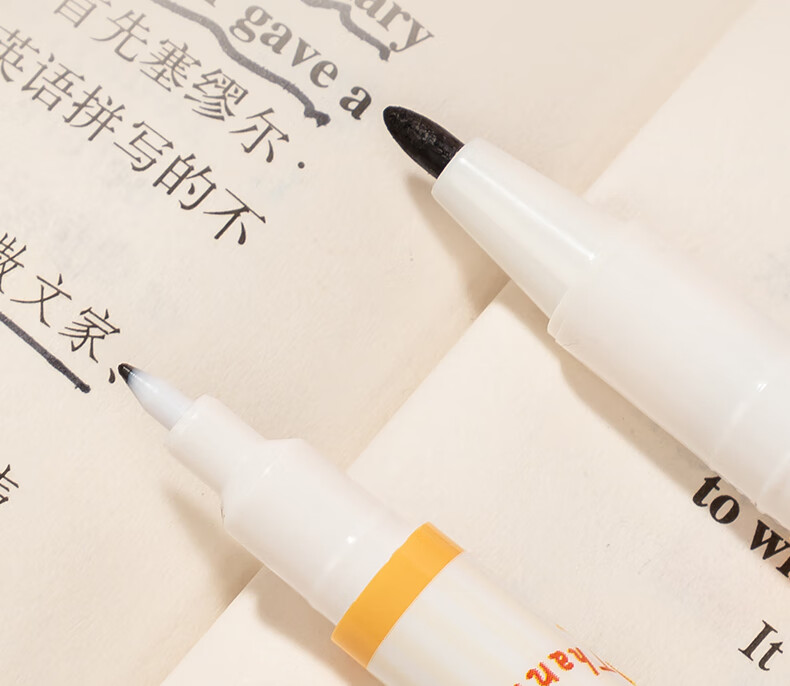 gave a
首先塞缪尔·
英语拼写的不
散文家、
to
It